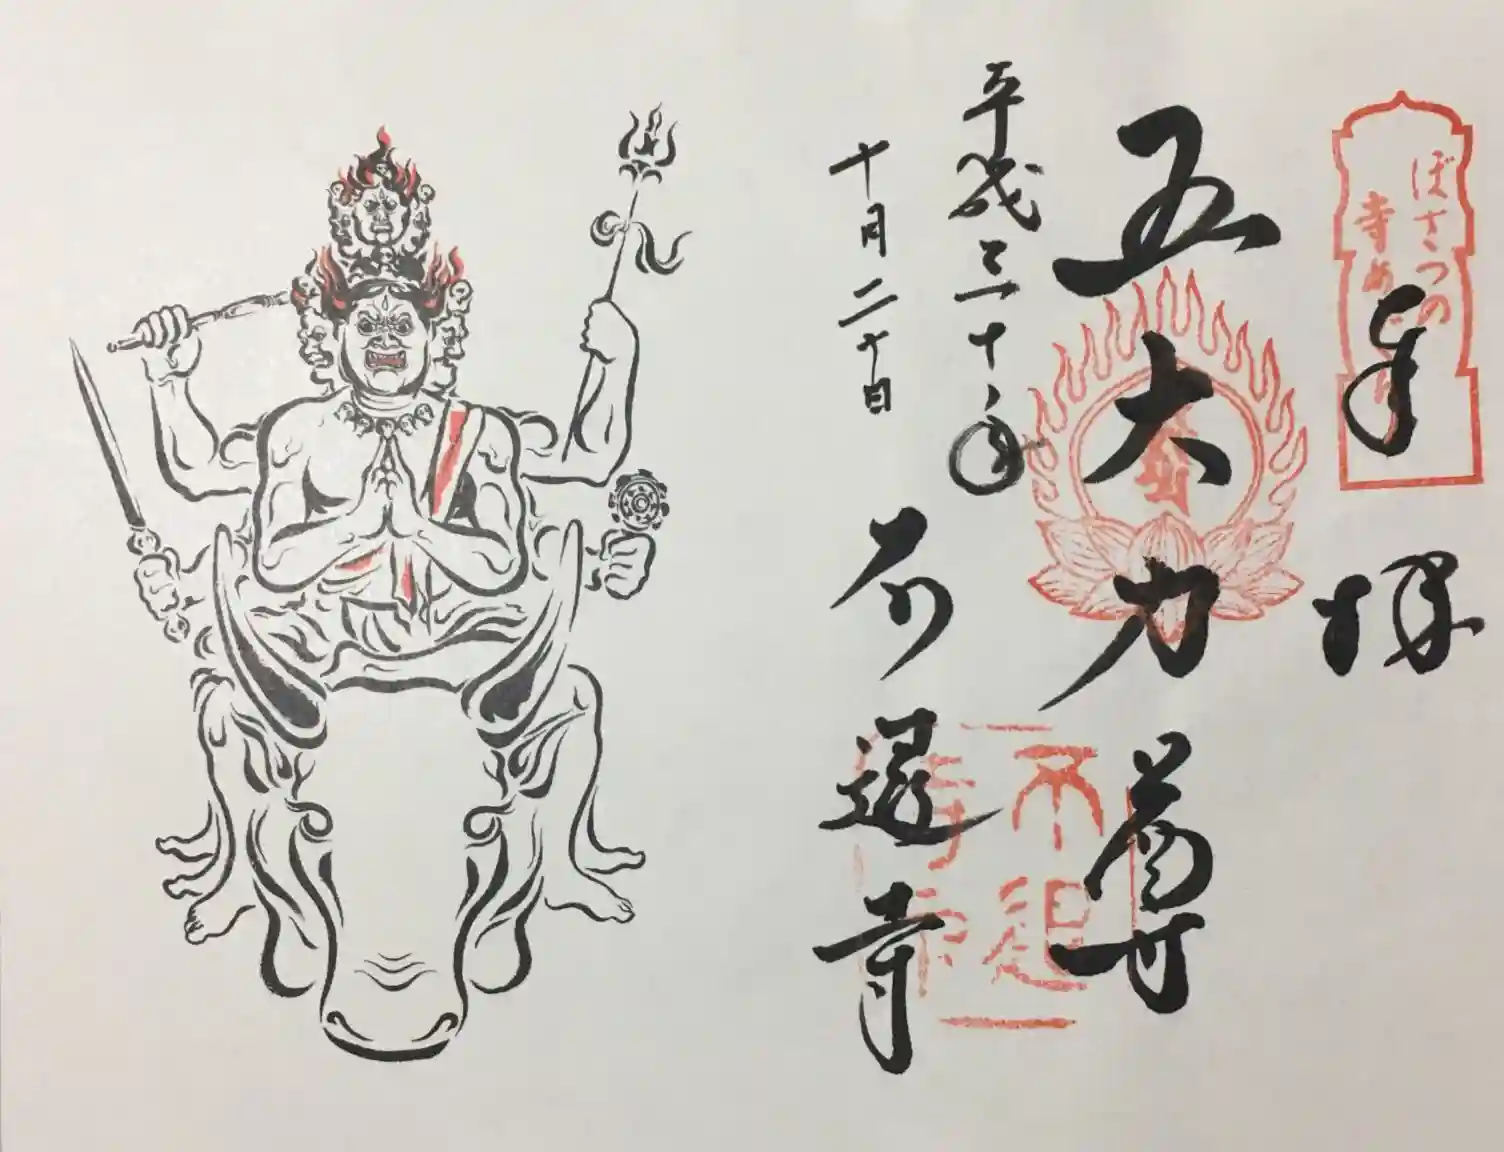 ぼさつの
寺めぐり
奉拝
五大力尊
平成三十年
十月二十日
不退寺
不退
寺印